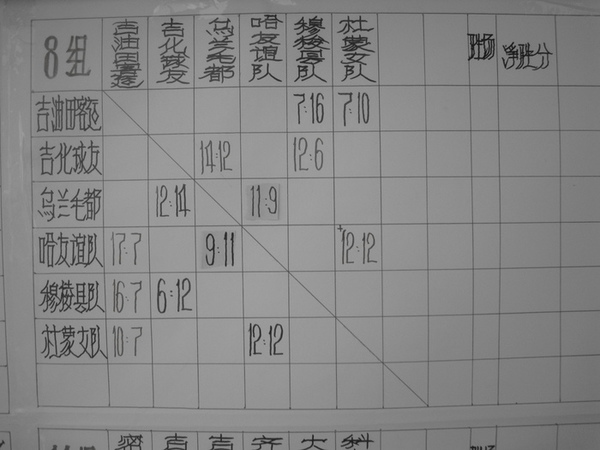 8组 吉油田客运 吉化球友 乌兰毛都 哈友谊队 穆棱县队 杜蒙女队 胜场 净胜分
吉油田客运 7:16 7:10
吉化球友 14:12 12:6
乌兰毛都 12:14 11:9
哈友谊队 17:7 9:11 +12:12
穆棱县队 16:7 6:12
杜蒙女队 10:7 12:12